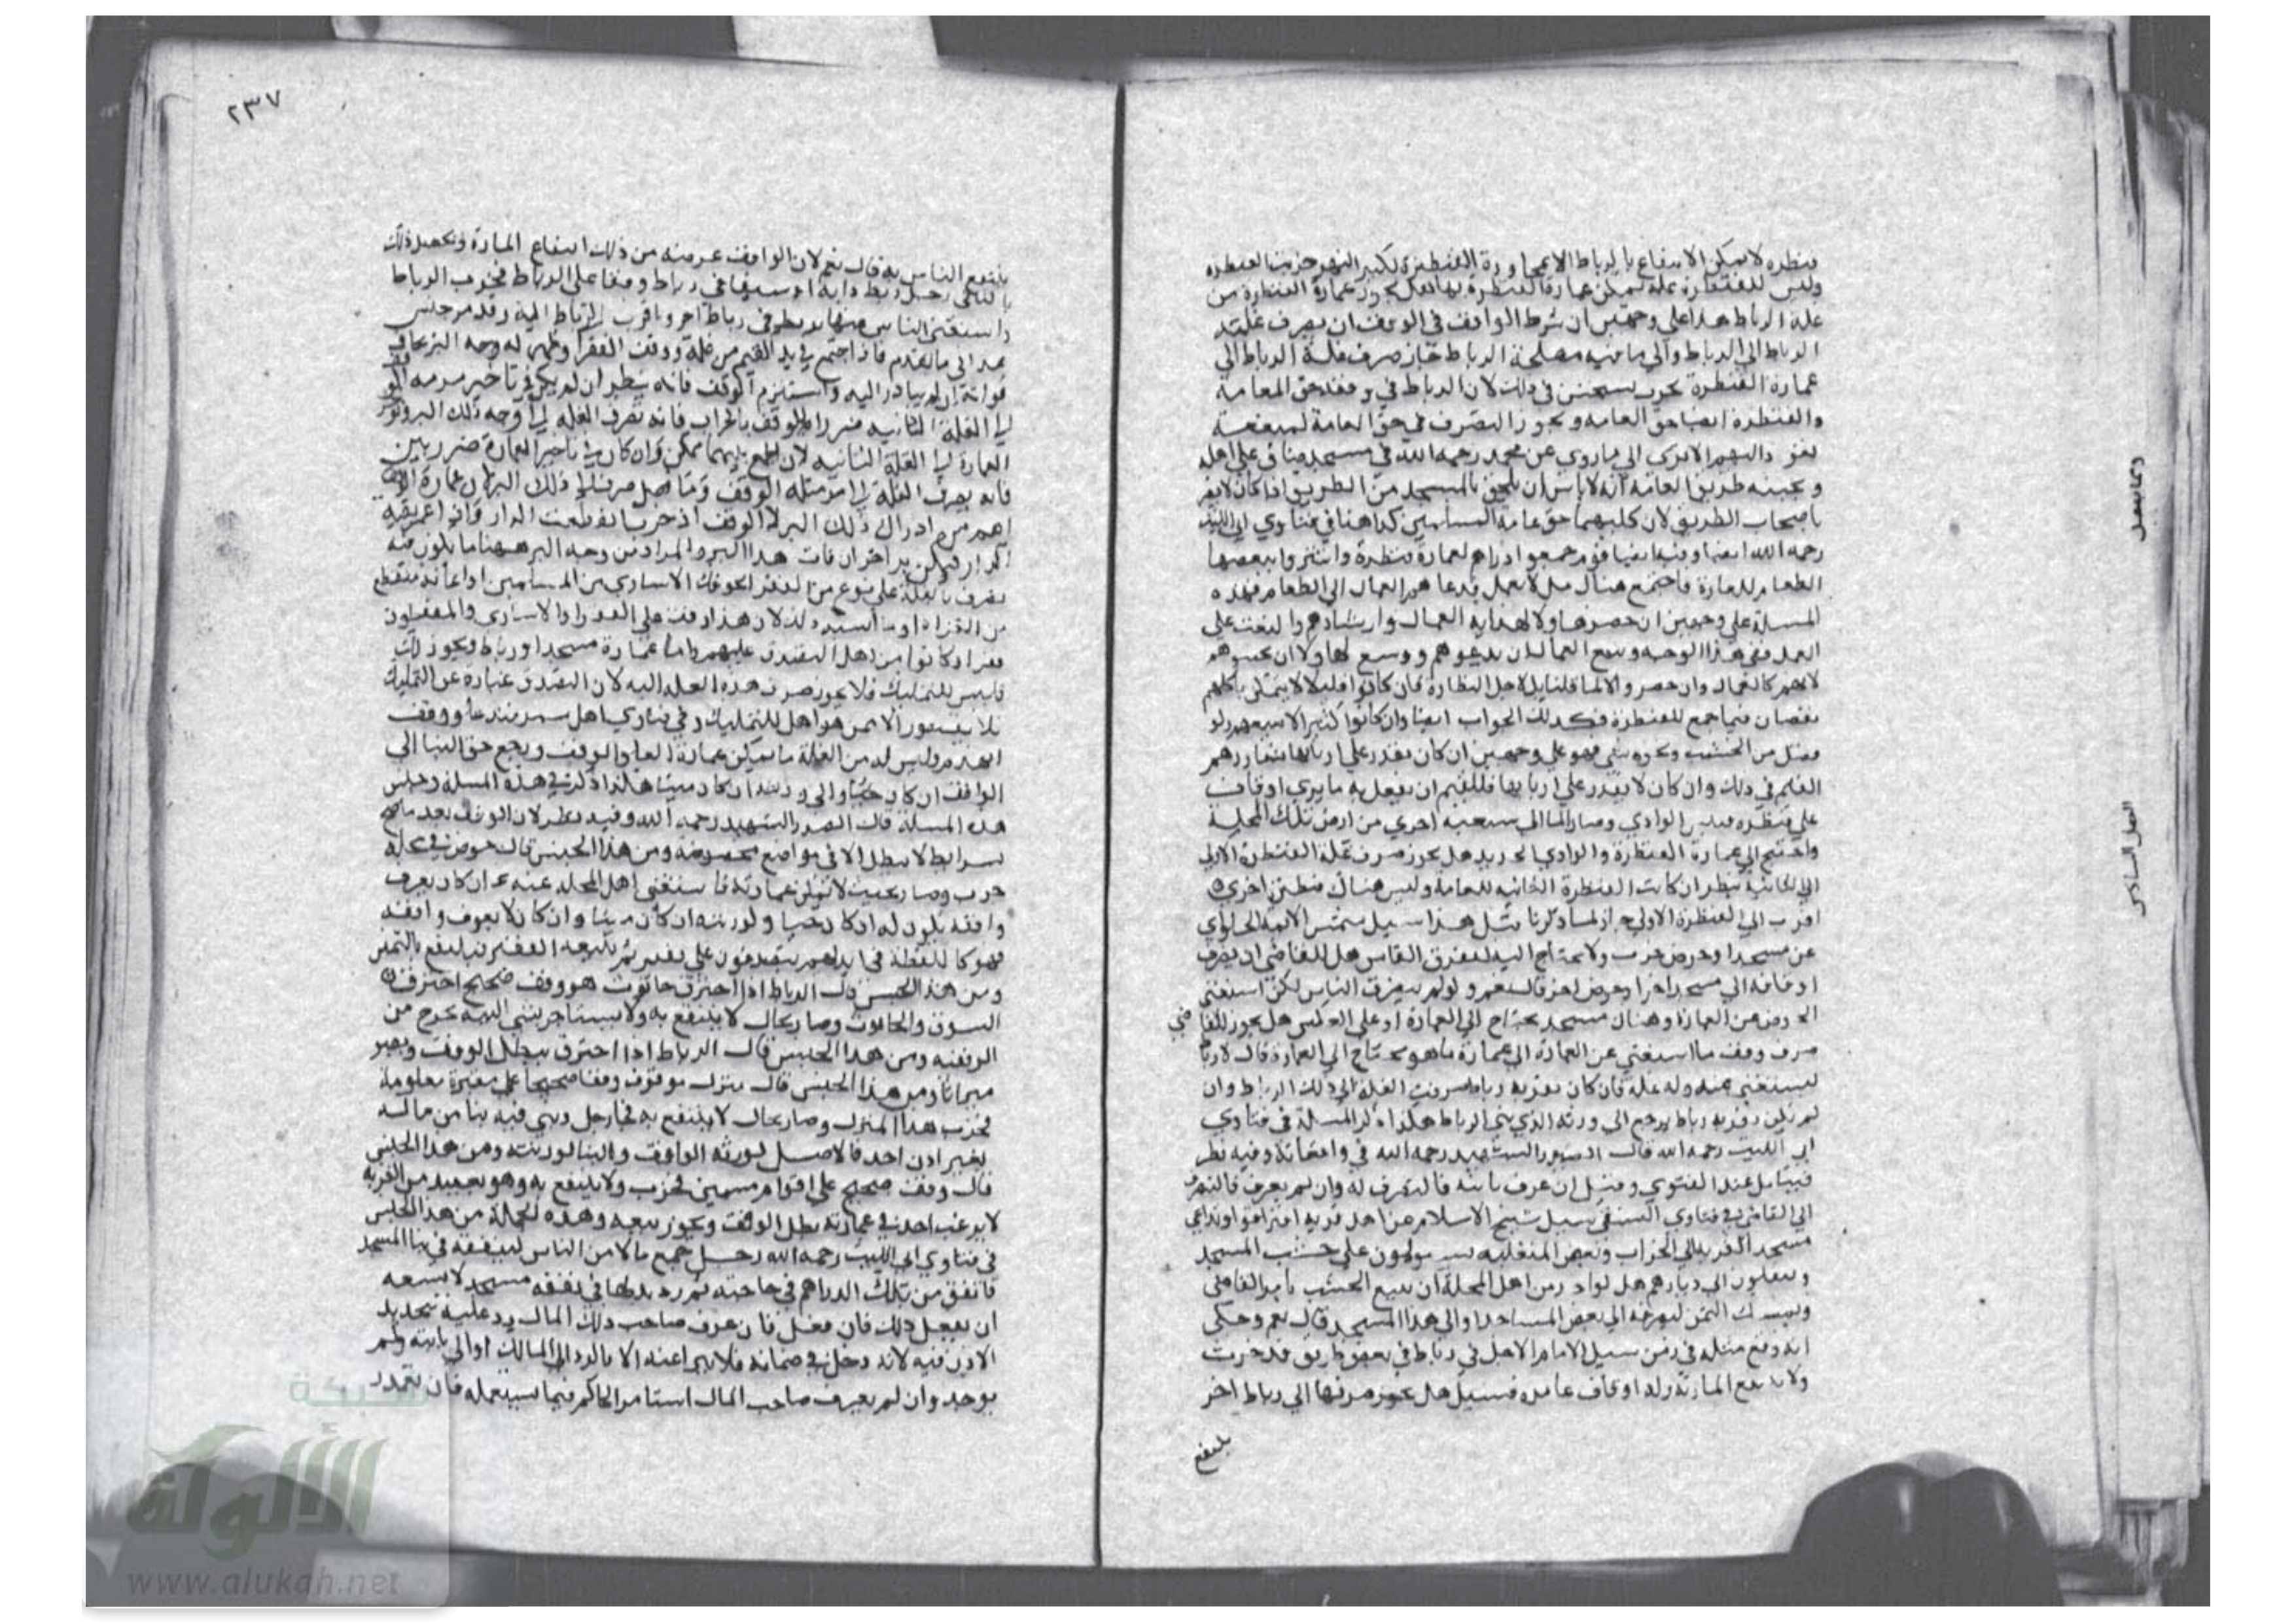 قنطرة لا يمكن الانتفاع بالرباط الا بمجاورة القنطرة لكبر النهر خربت القنطرة
وليس للقنطرة غلة يمكن عمارة القنطرة بها هل يجوز عمارة القنطرة من
غلة الرباط هذا على وجهين ان شرط الواقف في الوقف ان يصرف غلته
الى الرباط والى ما فيه مصلحة الرباط جاز صرف غلة الرباط الى
عمارة القنطرة يستحسن في ذلك لان الرباط في حق العامة
والقنطرة ايضا حق العامة ويجوز التصرف في حق العامة
الا يرى الى ما روي عن محمد رحمه الله في مسجد ضاق على اهله
وبجنبه طريق العامة انه لا باس ان يلحق بالمسجد من الطريق اذا كان لا يضر
باصحاب الطريق لان كليهما حق عامة المسلمين كذا هنا في فتاوي ابي الليث
رحمه الله ايضا وفيه ايضا قوم جمعوا دراهم لعمارة قنطرة واشتروا ببعضها
الطعام للعمارة فاجتمع هناك من لا يعمل يدعاهم العمال الى الطعام فهذه
المسلة على وجهين ان حضروا لهداية العمال وارشادهم والبعث على
العمل ففي هذا الوجه وسع العمال ان يدعوهم ووسع لها ولا ان يجيبوهم
لانهم كالعمال وان حضروا لاجل النظارة فان كانوا قليلا لا يتمكن باكلهم
نقصان فيما جمع للقنطرة فكذلك الجواب ايضا وان كانوا كثيرا لا يسعهم ولو
فضل من الخشب ونحوه شي فهو على وجهين ان كان يقدر على اربابها شاورهم
القيم في ذلك وان كان لا يقدر على اربابها فللقيم ان يفعل به ما يرى اوقاف
على قنطرة الوادي وصار الماء الى شعبة اخرى من ارض تلك المحلة
واحتيج الى عمارة القنطرة والوادي هل يجوز صرف غلة القنطرة الاولى
الى الثانية ينظر ان كانت القنطرة الثانية للعامة وليس هناك قنطرة اخرى
اقرب الى القنطرة الاولى جاز لما ذكرنا مثل هذا سيل شمس الايمة الحلواي
عن مسجد او حوض خرب ولا يحتاج اليه لتفرق الناس هل للقاضي ان يصرف
اوقافه الى مسجد اخر او حوض اخر قال نعم ولو لم يتفرق الناس لكن استغنى
الحوض عن العمارة وهناك مسجد يحتاج الى العمارة او على العكس هل يجوز للقاضي
صرف وقف ما استغنى عن العمارة الى عمارة ما هو يحتاج الى العمارة قال لا رباط
يستغنى عنه وله غلة فان كان بقربه رباط صرفت الغلة الى ذلك الرباط وان
لم يكن بقربه رباط يرجع الى ورثة الذي بنى الرباط هكذا ذكر المسلة في فتاوي
ابي الليث رحمه الله قال الصدر الشهيد رحمه الله في واقعاته وفيه نظر
فيتامل عند الفتوي وقيل ان عرف بانيه فالتصرف له وان لم يعرف فالتصرف
الى القاضي في فتاوي النسفي سيل شيخ الاسلام عن اهل قرية افترقوا وتداعى
مسجد القرية الى الخراب وبعض المتغلبة يستولون على خشب المسجد
وينقلون الى ديارهم هل لواحد من اهل المحلة ان يبيع الخشب بامر القاضي
ويمسك الثمن ليصرفه الى بعض المساجد او الى هذا المسجد قال نعم وحكى
انه وقع مثله في زمن سيدنا الامام الاجل في رباط في بعض طريق قد خربت
ولا ينتفع المارة وله اوقاف عامرة فسيل هل يجوز صرفها الى رباط اخر
ينتفع
٢٣٧
ينتفع الناس به قال نعم لان الواقف غرضه من ذلك انتفاع المارة وتحصيل ذلك
بالثاني رجل ربط دابة او سيفا في رباط وقفا على الرباط فخرب الرباط
واستغنى الناس عنها يربط في رباط اخر واقرب الرباط اليه وقد مر جنس
هذا في ما تقدم فاذا اجتمع في يد القيم من غلة ووقف الفقراء وظهر له وجه البر يخاف
فواته ان لم يبادر اليه واسترم الوقف فانه ينظر ان لم يكن في تاخير مرمة الوقف
الى الغلة الثانية ضررا للوقف بالخراب فانه تصرف الغلة الى وجه ذلك البر وتؤخر
العمارة الى الغلة الثانية لان الجمع بينهما ممكن وان كان في تاخير العمارة ضرر بين
فانه يصرف الغلة الى مرمة الوقف وما فضل صرف الى ذلك البر لان عمارة الوقف
اهم من ادراك ذلك البر
ان فات هذا البر والمراد من وجه البر ههنا ما يكون فيه
تصرف بالغلة على نوع من الفقر لنحو فك الاسارى من المسلمين او اعانة منقطع
من الغزاة او ما اشبه ذلك لان هذا وقف على الفقراء والاسارى والمنقطعون
فقراء وكانوا من اهل التصدق عليهم واما عمارة مسجد او رباط ونحو ذلك
فليس للتمليك فلا يجوز صرف هذه الغلة اليه لان التصدق عبارة عن التمليك
فلا يتصور الا ممن هو اهل للتمليك وفي فتاوي اهل سمرقند وقف
انهدم وليس له من الغلة ما يمكن عمارة الوقف ويرجع حق البنا الى
الواقف ان كان حيا والى ورثته ان كان ميتا هكذا ذكر في هذه المسلة وجنس
هذه المسلة قال الصدر الشهيد رحمه الله وفيه نظر لان الوقف بعد ما صح
بشرايط لا يبطل الا في مواضع مخصوصة ومن هذا الجنس قال حوض في محلة
خرب وصار بحيث لا يمكن عمارته فاستغنى اهل المحلة عنه ان كان يعرف
واقفه يكون له ان كان حيا ولورثته ان كان ميتا وان كان لا يعرف واقفه
فهو كاللقطة في ايديهم يتصدقون على فقير ثم يبيعه الفقير فينتفع بالثمن
ومن هذا الجنس قال الرباط اذا احترق حانوت هو وقف صحيح احترق
السوق والحانوت وصار بحال لا ينتفع به ولا يستاجر بشي البتة يخرج من
الوقفية ومن هذا الجنس قال الرباط اذا احترق يبطل الوقف ويصير
ميراثا ومن هذا الجنس قال منزل موقوف وقفا صحيحا على مقبرة معلومة
فخرب هذا المنزل وصار بحال لا ينتفع به فجا رجل وبنى فيه بنا من ماله
بغير اذن احد فالاصل لورثة الواقف والبنا لورثته ومن هذا الجنس
قال وقف صحيح على اقوام مسمين فخرب ولا ينتفع به وهو بعيد من القرية
لا يرغب احد في عمارته بطل الوقف ويجوز بيعه وهذه الجملة من هذا الجنس
في فتاوي ابي الليث رحمه الله رجل جمع مالا من الناس لينفقه في بنا المسجد
فانفق من تلك الدراهم في حاجته ثم رد بدلها في نفقة مسجد لا يسعه
ان يفعل ذلك فان فعل فان عرف صاحب ذلك المال رد عليه تجديد
الاذن فيه لانه دخل في ضمانه فلا يبرا عنه الا بالرد الى المالك او الى نايبه ولم
يوجد وان لم يعرف صاحب المال استامر الحاكم فيما يستعمله فان تعذر
شبكة
الألوكة
www.alukah.net